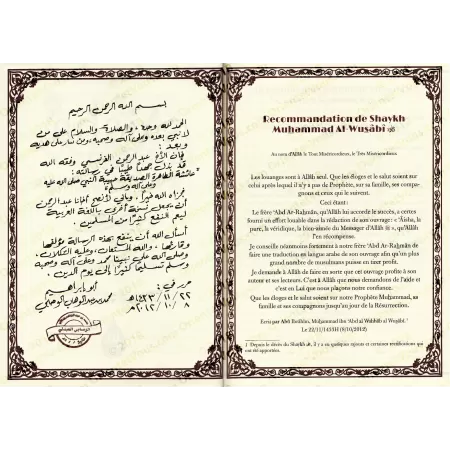 بسم الله الرحمن الرحيم
الحمد لله وحده، والصلاة والسلام على من
لا نبي بعده وعلى آله وصحبه، ومن سار على هديه
وبعد:
فإن الأخ عبد الرحمن الفرنسي وفقه الله
قد بذل جهدا طيبا في رسالته:
عائشة الطاهرة الصديقة حبيبة النبي صلى الله عليه
وعلى آله وسلم
فجزاه الله خيرا، وإني لأنصح أخانا عبد الرحمن
أن يجعل نسخة أخرى باللغة العربية
ليعم النفع كثيرا من المسلمين.
أسأل الله أن ينفع بهذه الرسالة مؤلفها
وقارئها، والله المستعان، وعليه التكلان.
وصلى الله على نبينا محمد وعلى آله وصحبه
وسلم تسليما كثيرا إلى يوم الدين.
أبو إبراهيم
محمد بن عبد الوهاب الوصابي
Recommandation de Shaykh
Muḥammad Al-Wuṣâbî
Au nom d'Allâh le Tout Miséricordieux, le Très Miséricordieux
Les louanges sont à Allâh seul. Que les éloges et le salut soient sur
celui après lequel il n'y a pas de Prophète, sur sa famille, ses compa-
gnons et ceux qui le suivent.
Ceci étant :
Le frère 'Abd Ar-Raḥmân, qu'Allâh lui accorde le succès, a certes
fourni un effort louable dans la rédaction de son ouvrage : « 'Âisha, la
pure, la véridique, la bien-aimée du Messager d'Allâh », qu'Allâh
l'en récompense.
Je conseille néanmoins fortement à notre frère 'Abd Ar-Raḥmân de
faire une traduction en langue arabe de son ouvrage afin qu'un plus
grand nombre de musulmans puisse en tirer profit.
Je demande à Allâh de faire en sorte que cet ouvrage profite à son
auteur et ses lecteurs. C'est à Allâh que nous demandons de l'aide et
c'est en Lui que nous plaçons notre confiance.
Que les éloges et le salut soient sur notre Prophète Muḥammad, sa
famille et ses compagnons jusqu'au jour de la Résurrection.
Écrit par Abû Ibrâhîm, Muḥammad ibn 'Abd al-Wahhâb al-Wuṣâbî.¹
Le 22/11/1433H (8/10/2012)
1 Depuis le décès du Shaykh, il y a eu quelques rajouts et certaines rectifications qui
ont été apportées.